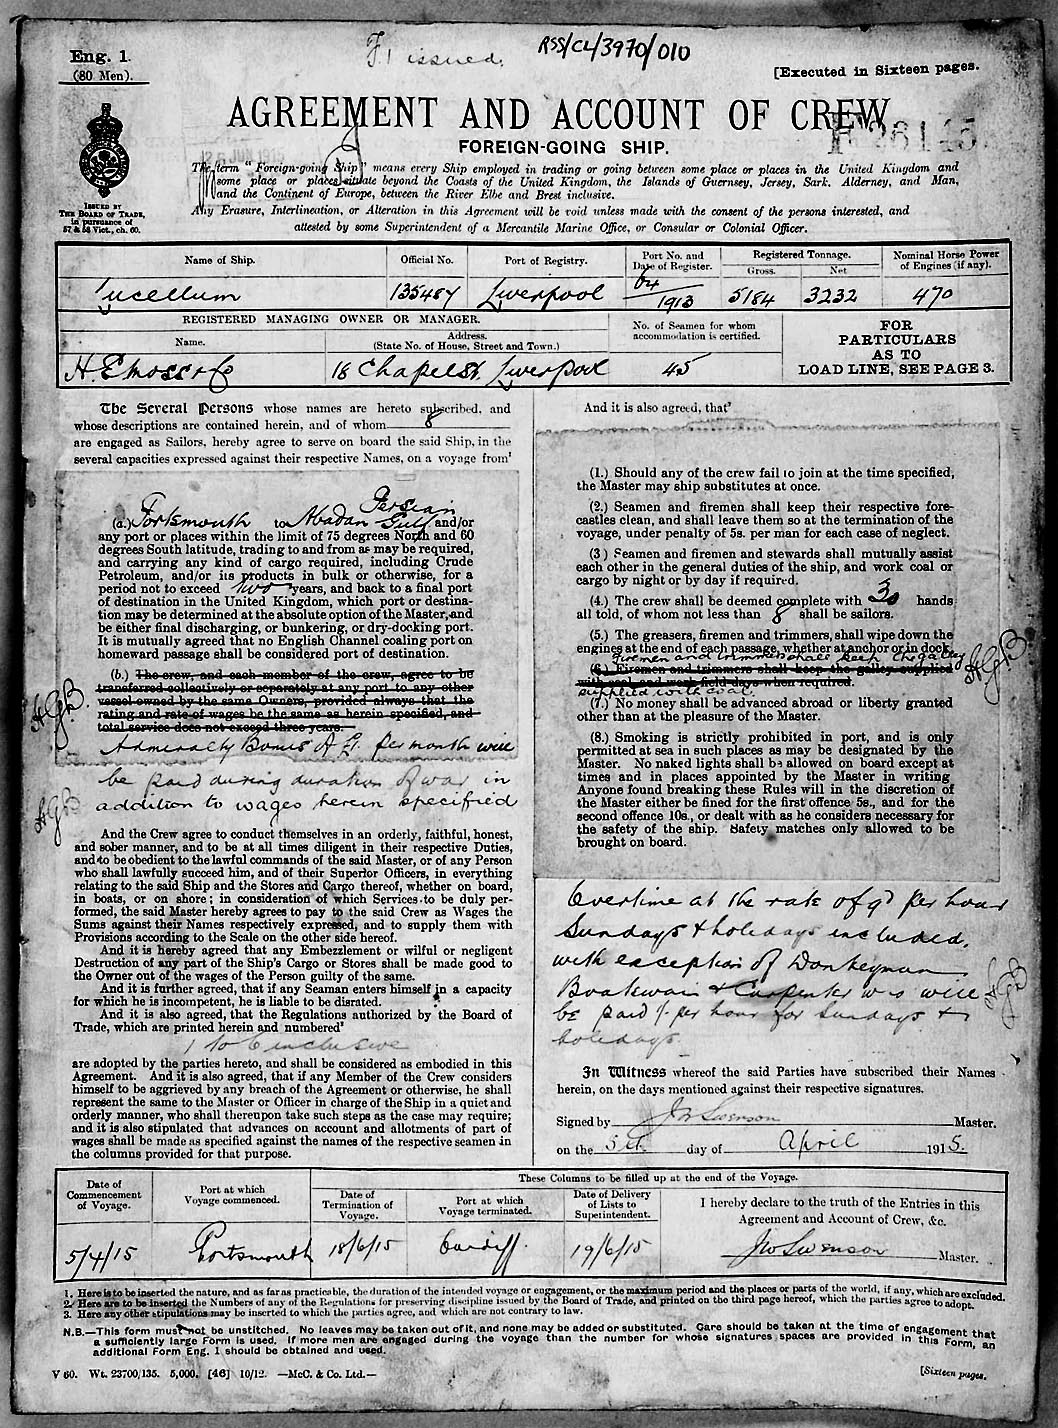 Eng. 1.
(80 Men).
F. 1 issued.
RSS/CL/3970/010
[Executed in Sixteen pages.
AGREEMENT AND ACCOUNT OF CREW
FOREIGN-GOING SHIP.
The term "Foreign-going Ship" means every Ship employed in trading or going between some place or places in the United Kingdom and
some place or places situate beyond the Coasts of the United Kingdom, the Islands of Guernsey, Jersey, Sark, Alderney, and Man,
and the Continent of Europe, between the River Elbe and Brest inclusive.
ISSUED BY
THE BOARD OF TRADE,
in pursuance of
57 & 58 Vict., ch. 60.
Any Erasure, Interlineation, or Alteration in this Agreement will be void unless made with the consent of the persons interested, and
attested by some Superintendent of a Mercantile Marine Office, or Consular or Colonial Officer.
Name of Ship. Official No. Port of Registry. Port No. and Date of Register. Registered Tonnage. Gross. Net Nominal Horse Power of Engines (if any).
Lucellum 135487 Liverpool 64/1913 5184 3232 470
REGISTERED MANAGING OWNER OR MANAGER.
Name. Address. (State No. of House, Street and Town.) No. of Seamen for whom accommodation is certified.
FOR
PARTICULARS
AS TO
LOAD LINE, SEE PAGE 3.
H.E. Moss & Co 18 Chapel St. Liverpool 45
The Several Persons whose names are hereto subscribed, and
whose descriptions are contained herein, and of whom 8
are engaged as Sailors, hereby agree to serve on board the said Ship, in the
several capacities expressed against their respective Names, on a voyage from¹
Persian
(a.) Portsmouth to Abadan Gulf and/or
any port or places within the limit of 75 degrees North and 60
degrees South latitude, trading to and from as may be required,
and carrying any kind of cargo required, including Crude
Petroleum, and/or its products in bulk or otherwise, for a
period not to exceed two years, and back to a final port
of destination in the United Kingdom, which port or destina-
tion may be determined at the absolute option of the Master, and
be either final discharging, or bunkering, or dry-docking port.
It is mutually agreed that no English Channel coaling port on
homeward passage shall be considered port of destination.
(b.) The crew, and each member of the crew, agree to be
transferred collectively or separately at any port to any other
vessel owned by the same Owners, provided always that the
rating and rate of wages be the same as herein specified, and
total service does not exceed three years.
H.G.B.
Admiralty Bonus of £1. per month will
be paid during duration of war in
addition to wages herein specified
H.G.B
And the Crew agree to conduct themselves in an orderly, faithful, honest,
and sober manner, and to be at all times diligent in their respective Duties,
and to be obedient to the lawful commands of the said Master, or of any Person
who shall lawfully succeed him, and of their Superior Officers, in everything
relating to the said Ship and the Stores and Cargo thereof, whether on board,
in boats, or on shore; in consideration of which Services to be duly per-
formed, the said Master hereby agrees to pay to the said Crew as Wages the
Sums against their Names respectively expressed, and to supply them with
Provisions according to the Scale on the other side hereof.
And it is hereby agreed that any Embezzlement or wilful or negligent
Destruction of any part of the Ship's Cargo or Stores shall be made good to
the Owner out of the wages of the Person guilty of the same.
And it is further agreed, that if any Seaman enters himself in a capacity
for which he is incompetent, he is liable to be disrated.
And it is also agreed, that the Regulations authorized by the Board of
Trade, which are printed herein and numbered²
1 to 6 inclusive
are adopted by the parties hereto, and shall be considered as embodied in this
Agreement. And it is also agreed, that if any Member of the Crew considers
himself to be aggrieved by any breach of the Agreement or otherwise, he shall
represent the same to the Master or Officer in charge of the Ship in a quiet and
orderly manner, who shall thereupon take such steps as the case may require;
and it is also stipulated that advances on account and allotments of part of
wages shall be made as specified against the names of the respective seamen in
the columns provided for that purpose.
And it is also agreed, that³
(1.) Should any of the crew fail to join at the time specified,
the Master may ship substitutes at once.
(2.) Seamen and firemen shall keep their respective fore-
castles clean, and shall leave them so at the termination of the
voyage, under penalty of 5s. per man for each case of neglect.
(3) Seamen and firemen and stewards shall mutually assist
each other in the general duties of the ship, and work coal or
cargo by night or by day if required.
(4.) The crew shall be deemed complete with 30 hands
all told, of whom not less than 8 shall be sailors.
(5.) The greasers, firemen and trimmers, shall wipe down the
engines at the end of each passage, whether at anchor or in dock.
Firemen and trimmers shall keep the galley
(6.) Firemen and trimmers shall keep the galley supplied
with coal and work field days when required.
supplied with coal.
H.G.B
(7.) No money shall be advanced abroad or liberty granted
other than at the pleasure of the Master.
(8.) Smoking is strictly prohibited in port, and is only
permitted at sea in such places as may be designated by the
Master. No naked lights shall be allowed on board except at
times and in places appointed by the Master in writing
Anyone found breaking these Rules will in the discretion of
the Master either be fined for the first offence 5s., and for the
second offence 10s., or dealt with as he considers necessary for
the safety of the ship. Safety matches only allowed to be
brought on board.
Overtime at the rate of 9d per hour
Sundays & holidays included.
with exception of Donkeyman
Boatswain & Carpenter who will
be paid 1/- per hour for Sundays &
holidays.
H.G.B
In Witness whereof the said Parties have subscribed their Names
herein, on the days mentioned against their respective signatures.
Signed by J W Swenson Master.
on the 5th day of April 1915.
Date of Commencement of Voyage. Port at which Voyage commenced. These Columns to be filled up at the end of the Voyage.
Date of Termination of Voyage. Port at which Voyage terminated. Date of Delivery of Lists to Superintendent.
I hereby declare to the truth of the Entries in this
Agreement and Account of Crew, &c.
5/4/15 Portsmouth 18/6/15 Cardiff. 19/6/15 J W Swenson Master.
1. Here is to be inserted the nature, and as far as practicable, the duration of the intended voyage or engagement, or the maximum period and the places or parts of the world, if any, which are excluded.
2. Here are to be inserted the Numbers of any of the Regulations for preserving discipline issued by the Board of Trade, and printed on the third page hereof, which the parties agree to adopt.
3. Here any other stipulations may be inserted to which the parties agree, and which are not contrary to law.
N.B.—This form must not be unstitched. No leaves may be taken out of it, and none may be added or substituted. Care should be taken at the time of engagement that
a sufficiently large Form is used. If more men are engaged during the voyage than the number for whose signatures spaces are provided in this Form, an
additional Form Eng. 1 should be obtained and used.
V 60. Wt. 23700/135. 5,000. [46] 10/12. —McC. & Co. Ltd.—
[Sixteen pages.